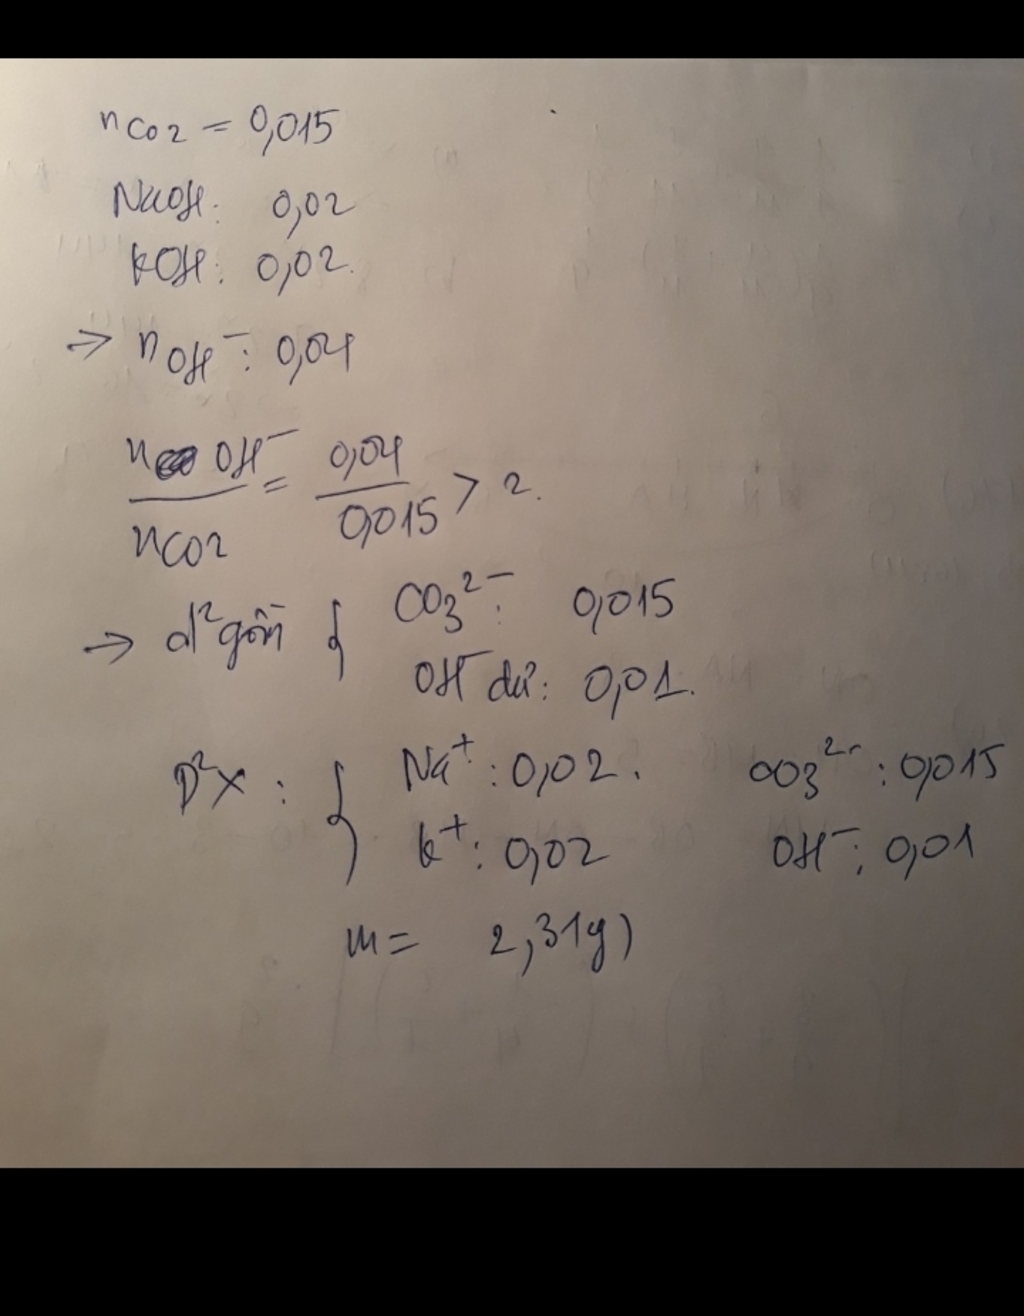 nCO2 = 0,015
NaOH: 0,02
KOH: 0,02.
=> nOH⁻: 0,04
nOH⁻ / nCO2 = 0,04 / 0,015 > 2.
→ d² gồm { CO3²⁻: 0,015
OH⁻ dư: 0,01.
D²X: { Na⁺: 0,02. CO3²⁻: 0,015
K⁺: 0,02 OH⁻: 0,01
m = 2,31g)